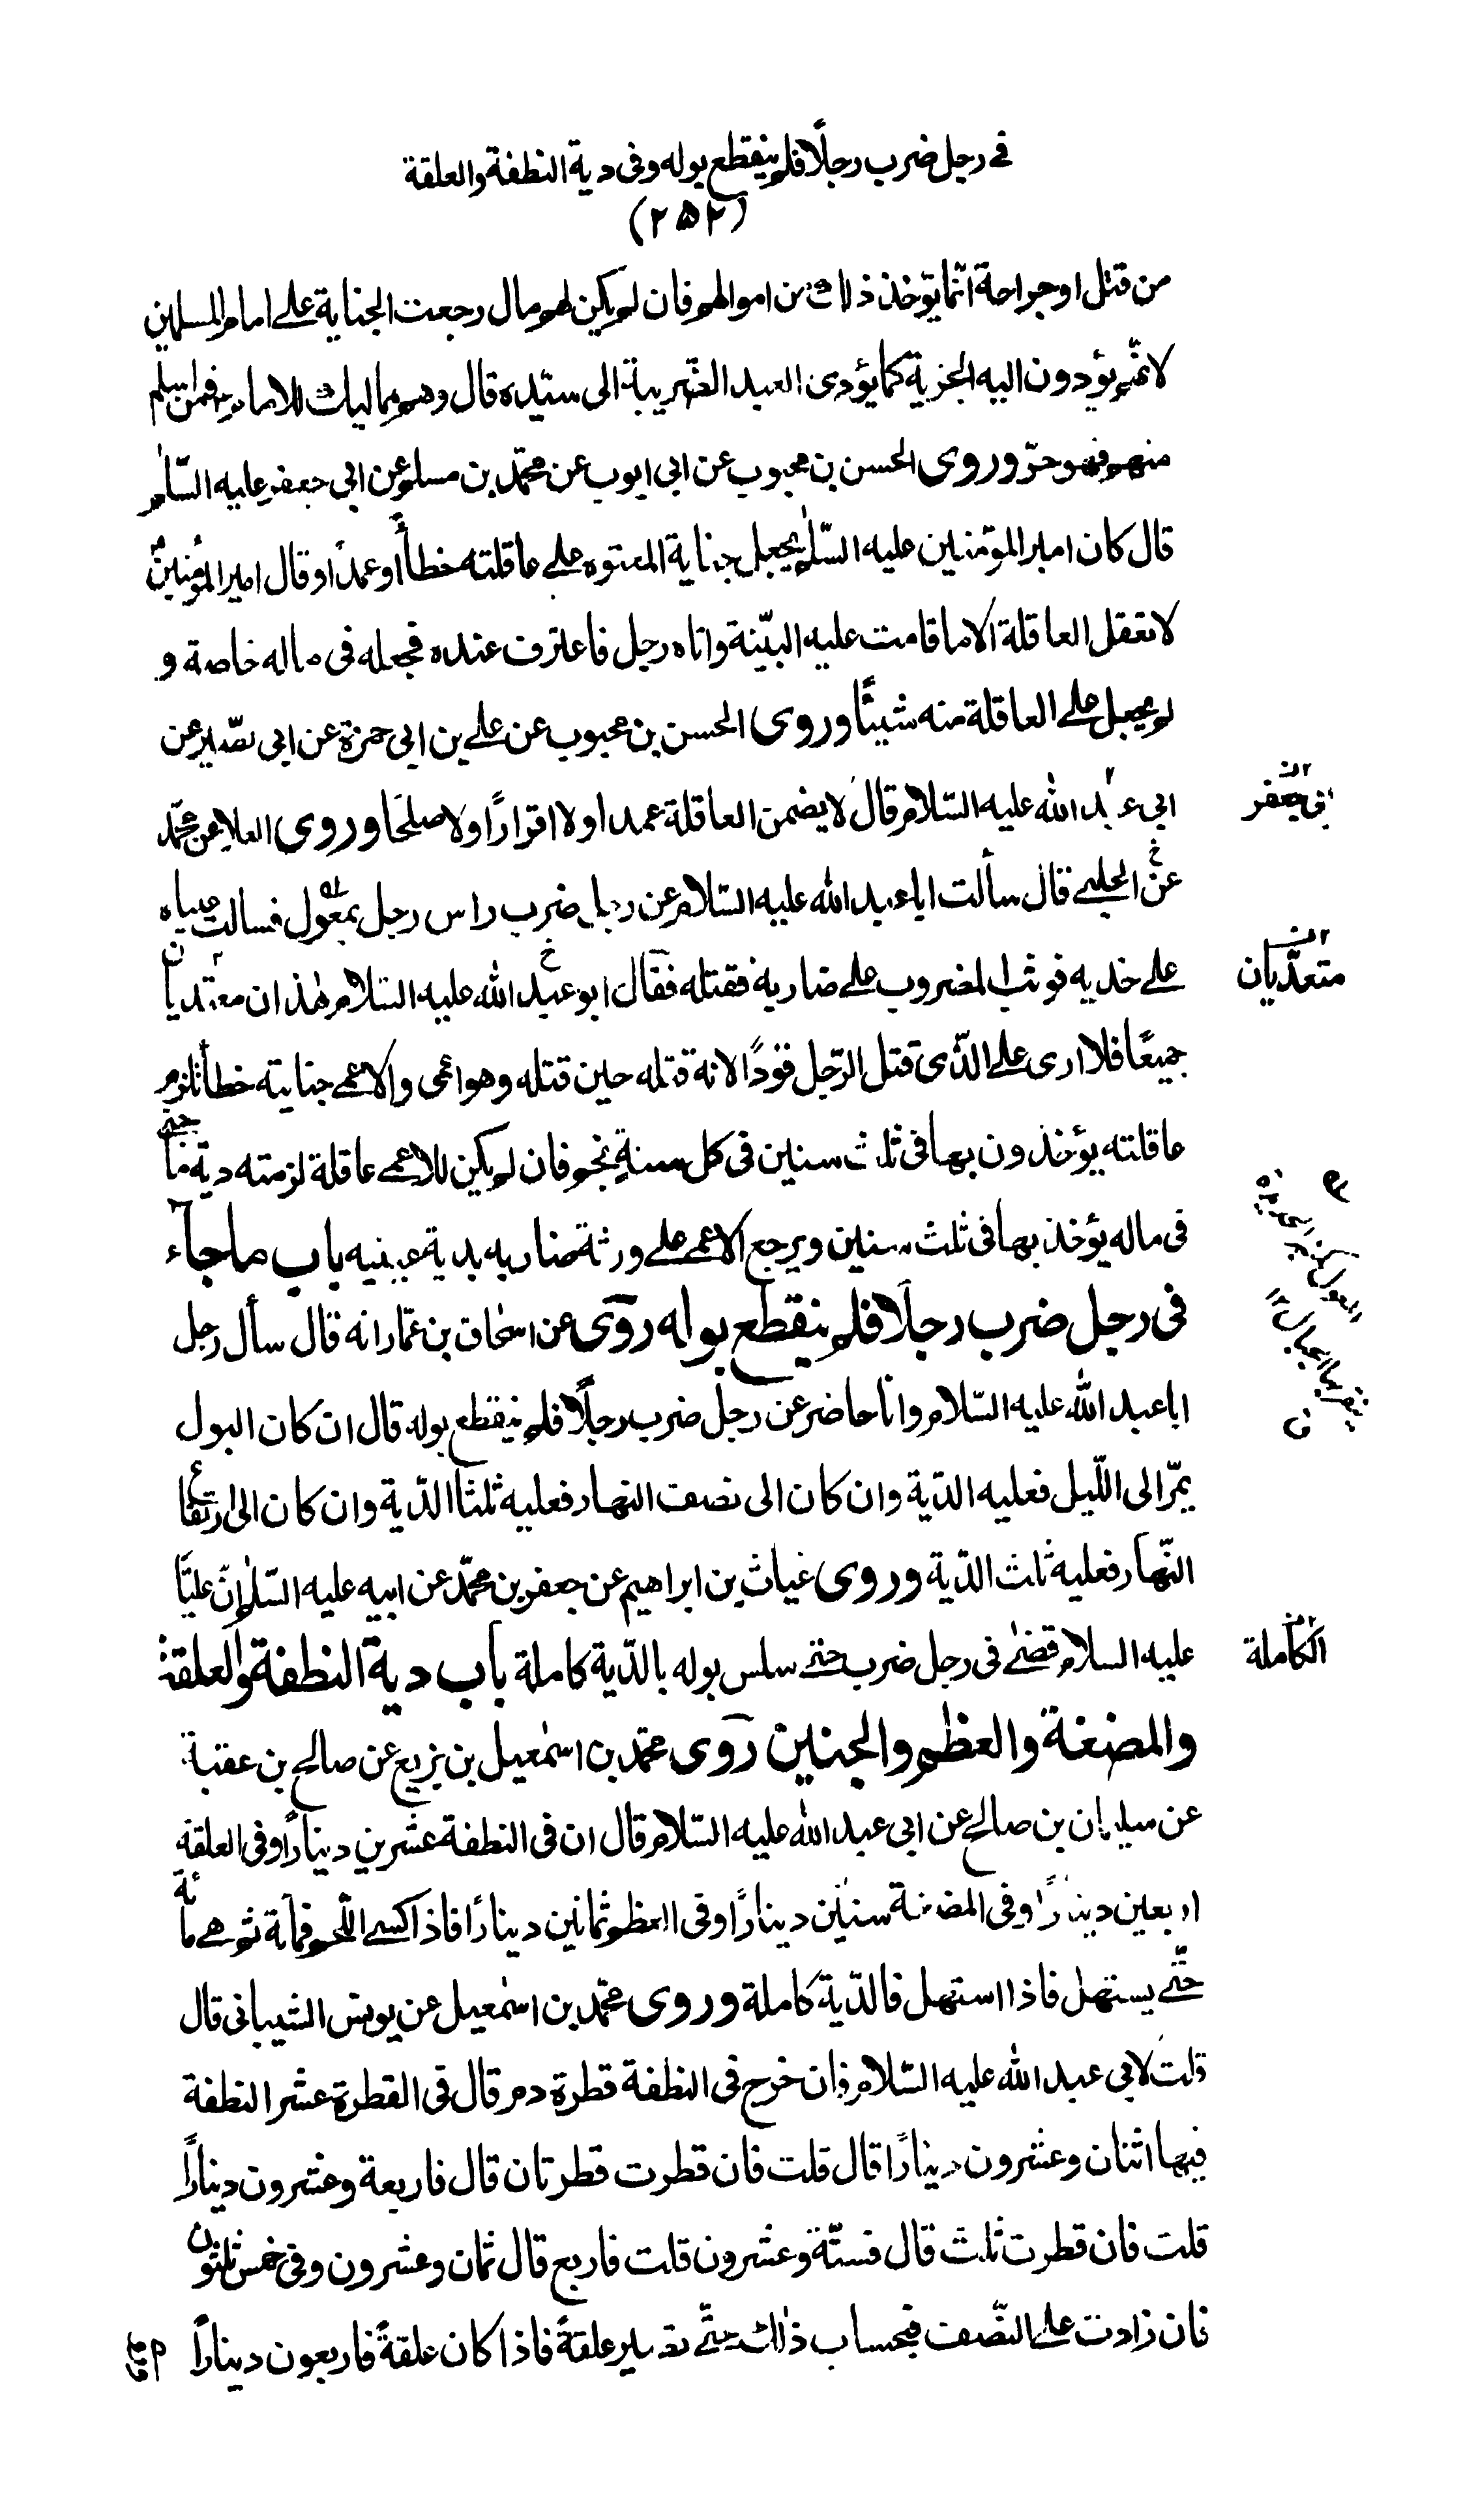 في رجل ضرب رجلًا فلم ينقطع بوله وفى دية النطفة والعلقة
(۲۵۲)
من قتل او جراحة انّما يؤخذ ذلك من اموالهم فان لم يكن لهم مال رجعت الجناية على امام المسلمين
لانّهم يؤدون اليه الجزية كما يؤدى العبد الضّريبة الى سيّده قال وهم مماليك للامام فمن اسلم
منهم فهو حرّ وروى الحسن بن محبوب عن ابى ايوب عن محمّد بن مسلم عن ابى جعفر عليه السّلام
قال كان امير المؤمنين عليه السّلم يجعل جناية المعتوه على عاقلته خطأً او عمدًا وقال امير المؤمنين
لا تعقل العاقلة الا ما قامت عليه البيّنة واتاه رجل فاعترف عنده فجعله فى ماله خاصة و
لم يجعل على العاقلة منه شيئًا وروى الحسن بن محبوب عن على بن ابى حمزة عن ابى بصير عن
ابى عبد الله عليه السّلام قال لا يضمن العاقلة عمدا ولا اقرارًا ولا صلحًا وروى العلا عن محمّد
ابى جعفر
عن الحلبى قال سألت ابا عبد الله عليه السّلام عن رجل ضرب راس رجل بمعول فسالت عيناه
على خديه فوثب المضروب على ضاربه فقتله فقال ابو عبد الله عليه السّلام هذان معتديان
متعدّيان
جميعًا فلا ارى على الّذى قتل الرّجل قودًا لانه قتله حين قتله وهو اعمى والاعمى جنايته خطأ تلزم
عاقلته يؤخذون بها فى ثلث سنين فى كل سنةٍ نجم فان لم يكن للاعمى عاقلة لزمته دية ما جنى
فى ماله يؤخذ بها فى ثلث سنين ويرجع الاعمى على ورثة ضاربه بدية عينيه باب ما جآء
فى رجل ضرب رجلًا فلم ينقطع بوله روى عن اسحاق بن عمّار انه قال سأل رجل
ابا عبد الله عليه السّلام وانا حاضر عن رجل ضرب رجلًا فلم ينقطع بوله قال ان كان البول
يمرّ الى اللّيل فعليه الدّية وان كان الى نصف النهار فعليه ثلثا الدّية وان كان الى ارتفاع
النّهار فعليه ثلث الدّية وروى غياث بن ابراهيم عن جعفر بن محمّد عن ابيه عليه السّلم انّ عليًّا
عليه السلام قضى فى رجل ضرب حتى سلس بوله بالدّية كاملة باب دية النطفة والعلقة
الكاملة
والمضغة والعظم والجنين روى محمّد بن اسمٰعيل بن بزيع عن صالح بن عقبة
عن سليمان بن صالح عن ابى عبد الله عليه السّلام قال ان فى النطفة عشرين دينارًا وفى العلقة
اربعين دينارًا وفى المضغة ستين دينارًا وفى العظم ثمانين دينارًا فاذا كسى اللّحم فمأة ثم هى مائة
حتّى يستهل فاذا استهل فالدّية كاملة وروى محمّد بن اسمٰعيل عن يونس الشيبانى قال
قلت لابى عبد الله عليه السّلام فان خرج فى النطفة قطرة دم قال فى القطرة عشر النطفة
فيها اثنان وعشرون دينارًا قال قلت فان قطرت قطرتان قال فاربعة وعشرون دينارًا
قلت فان قطرت ثلث قال فستّة وعشرون قلت فاربع قال ثمان وعشرون وفى خمس ثلثون
فان زادت على النّصف فبحساب ذلك حتّى تصير علقةً فاذا كان علقةً فاربعون دينارًا